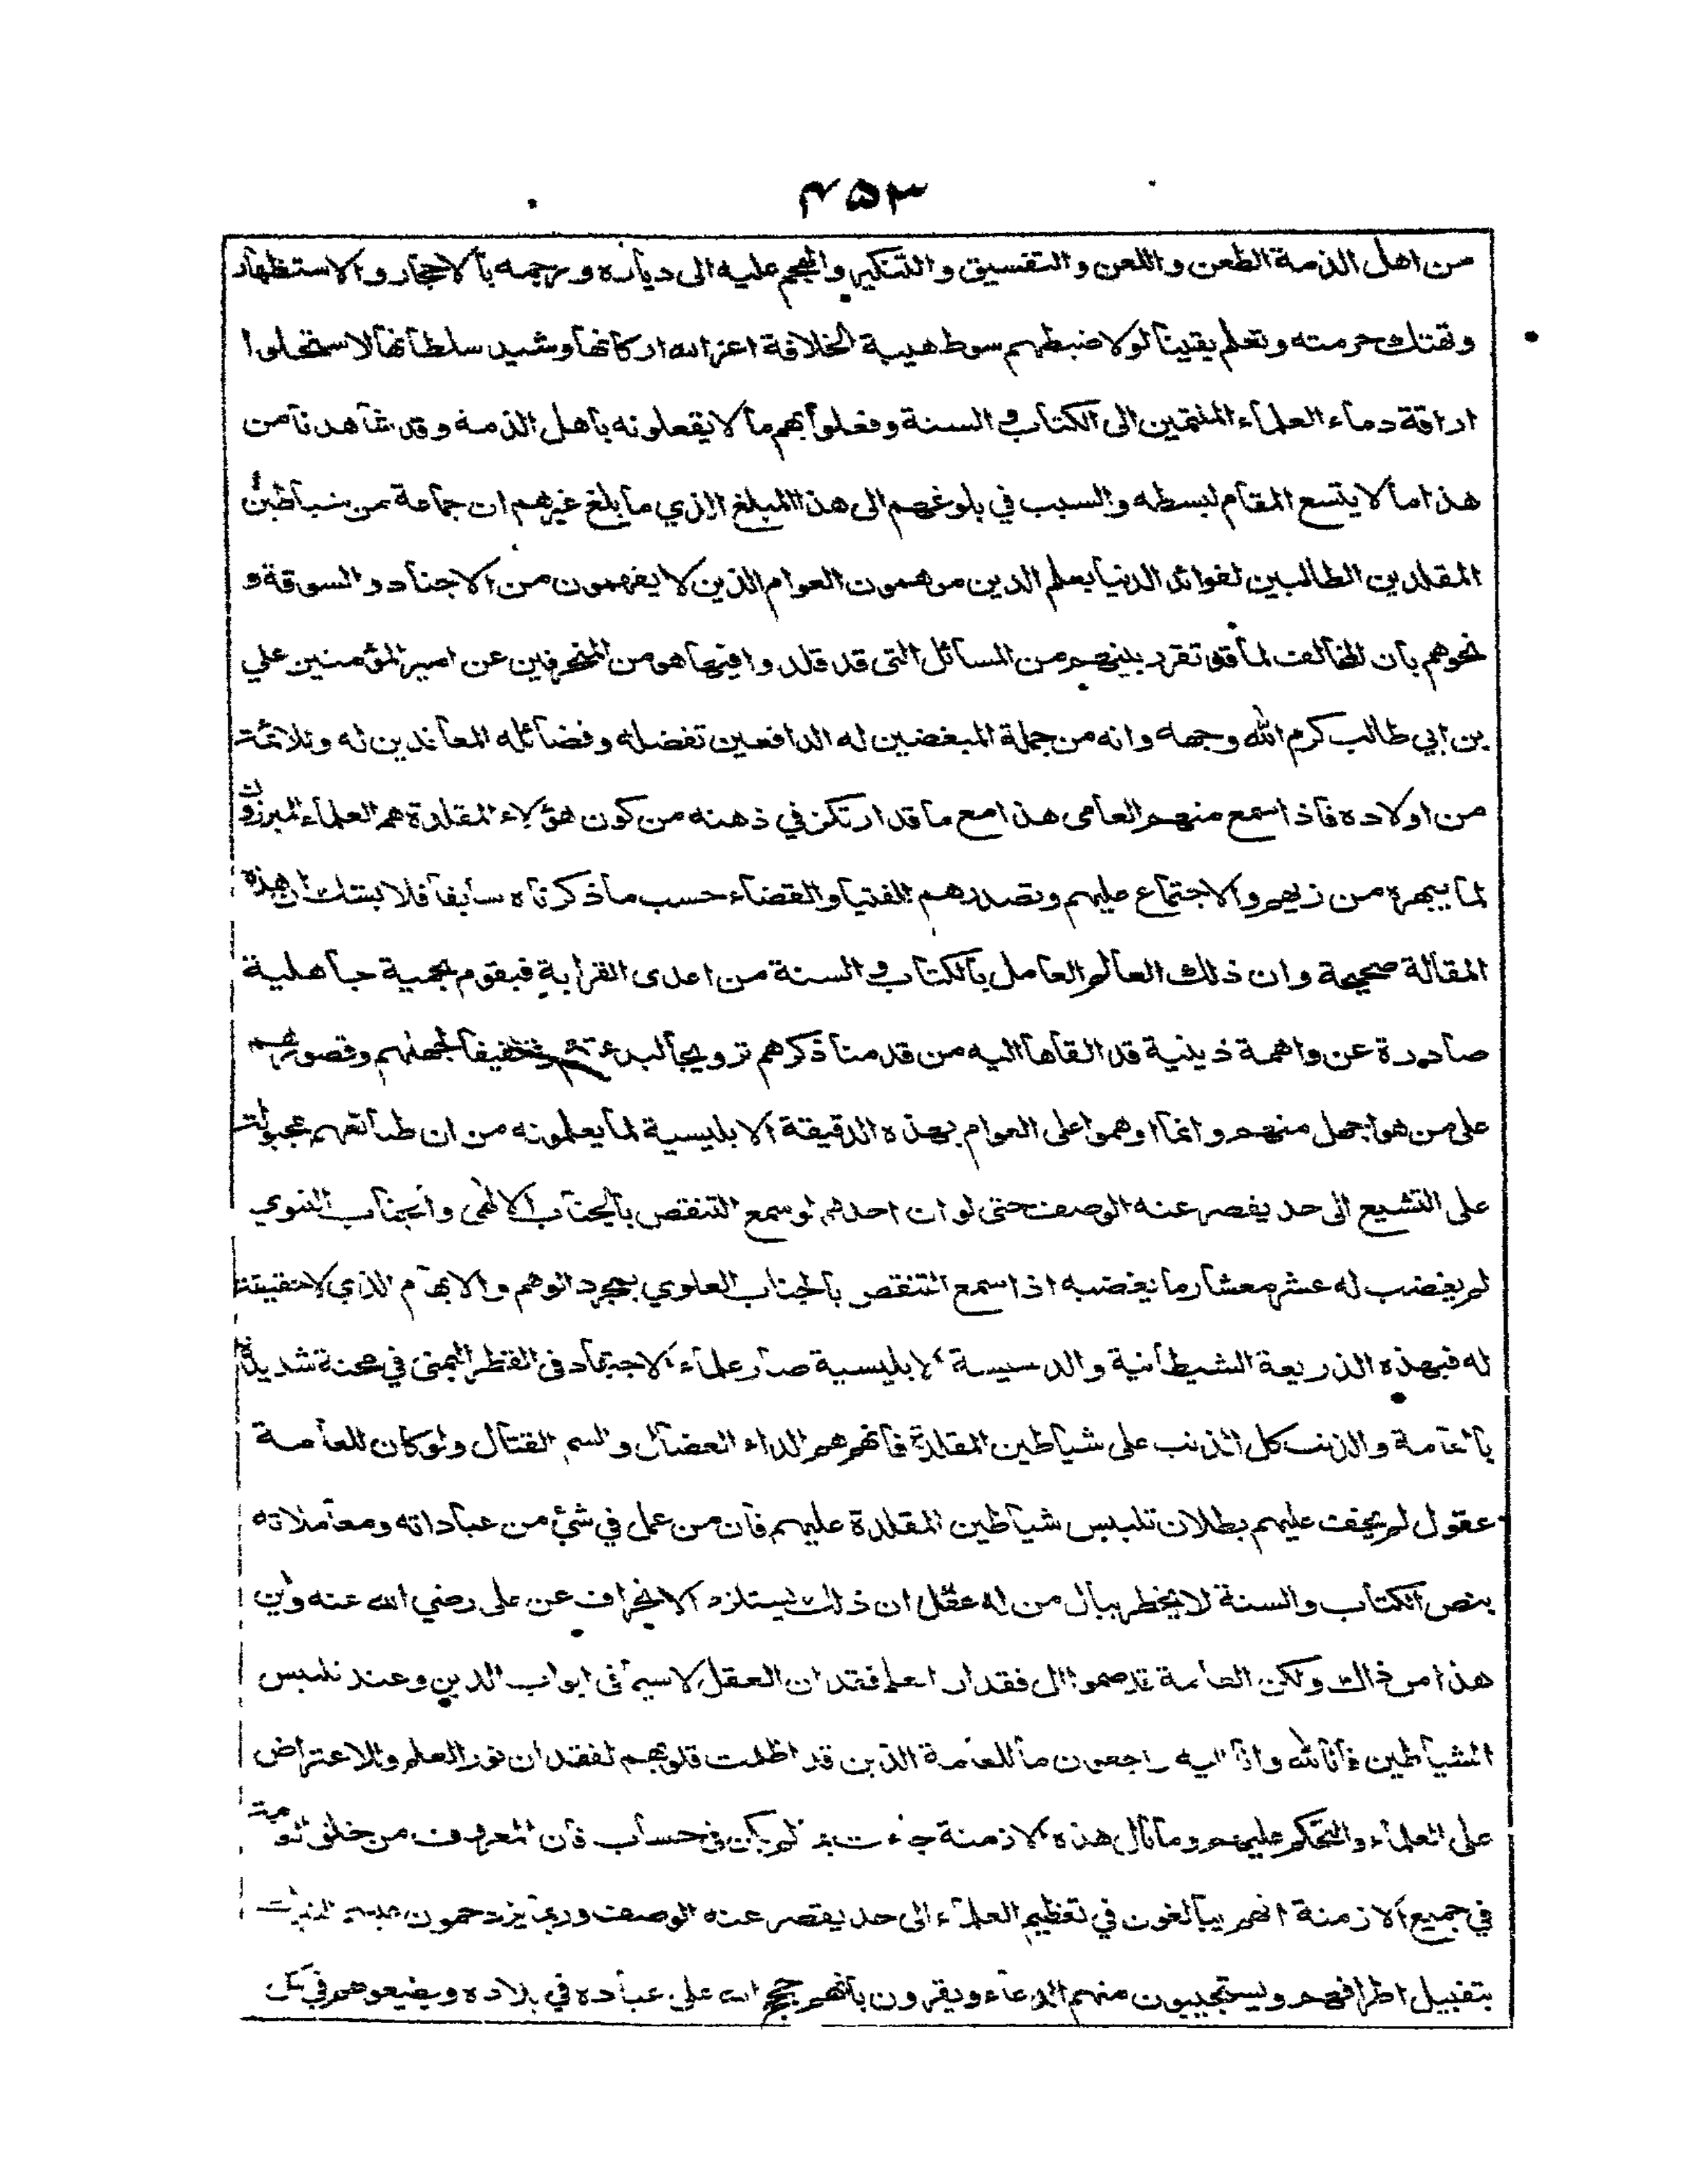 ۴۵۳
من اهل الذمة الطعن واللعن والتفسيق والتنكير والهجم عليه الى دياره ورجمه بالاحجار والاستظهار
وتهتك حرمته وتعلم يقينا لولا ضبطهم سوط هيبة الخلافة اعز الله اركانها وشيد سلطانها لاستحلوا
اراقة دماء العلماء المنتمين الى الكتاب والسنة وفعلوا بهم ما لا يفعلونه باهل الذمة وقد شاهدنا من
هذا ما لا يتسع المقام لبسطه والسبب في بلوغهم الى هذا المبلغ الذي ما بلغ غيرهم ان جماعة من شياطين
المقلدين الطالبين لفوائد الدنيا بعلم الدين موهمون العوام الذين لا يفهمون من الاجناد والسوقة و
نحوهم بان المخالف لما قد تقرر بينهم من المسائل التي قد قلدوا فيها هو من المنحرفين عن امير المؤمنين علي
بن ابي طالب كرم الله وجهه وانه من جملة المبغضين له الدافعين تفضله وفضائله المعاندين له وللائمة
من اولاده فاذا سمع منهم العامى هذا مع ما قد ارتكز في ذهنه من كون هؤلاء المقلدة هم العلماء المبرزون
لما يبهره من زيهم والاجتماع عليهم وتصدرهم للفتيا والقضاء حسب ما ذكرناه سابقا فلا يشك ان هذه
المقالة صحيحة وان ذلك العالم العامل بالكتاب والسنة من اعدى القرابة فيقوم بحمية جاهلية
صادرة عن واهمة دينية قد القاها اليه من قدمنا ذكرهم ترويجا لبدعتهم وتخفيفا لجهلهم وقصورهم
على من هو اجهل منهم وانما اوهموا على العوام بهذه الدقيقة الابليسية لما يعلمونه من ان طبائعهم مجبولة
على التشيع الى حد يقصر عنه الوصف حتى لو ان احدهم لو سمع التنقص بالجناب الالهى والجناب النبوي
لم يغضب له عشر معشار ما يغضبه اذا سمع التنقص بالجناب العلوي بمجرد الوهم والايهام الذي لا حقيقة
له فبهذه الذريعة الشيطانية والدسيسة الابليسية صار علماء الاجتهاد في القطر اليمنى في محنة شديدة
بالعامة والذنب كل الذنب على شياطين المقلدة فانهم هم الداء العضال والسم القتال ولو كان للعامة
عقول لم يخف عليهم بطلان تلبيس شياطين المقلدة عليهم فان من عمل في شئ من عباداته ومعاملاته
بنص الكتاب والسنة لا يخطر ببال من له عقل ان ذلك يستلزم الانحراف عن على رضي الله عنه واين
هذا من ذاك ولكن العامة قد ضموا الى فقدان العلم فقدان العقل لا سيما في ابواب الدين وعند تلبيس
الشياطين فانا لله وانا اليه راجعون ما للعامة الذين قد اظلمت قلوبهم لفقدان نور العلم وللاعتراض
على العلماء والتحكم عليهم وما بال هذه الازمنة جاءت بما لم يكن في حساب فان المعروف من خلق العامة
في جميع الازمنة انهم يبالغون في تعظيم العلماء الى حد يقصر عنه الوصف وربما يزدحمون عليهم للتبرك
بتقبيل اطرافهم ويستجيبون منهم الدعاء ويقرون بانهم حجج الله على عباده في بلاده ويضيعوهم في كل